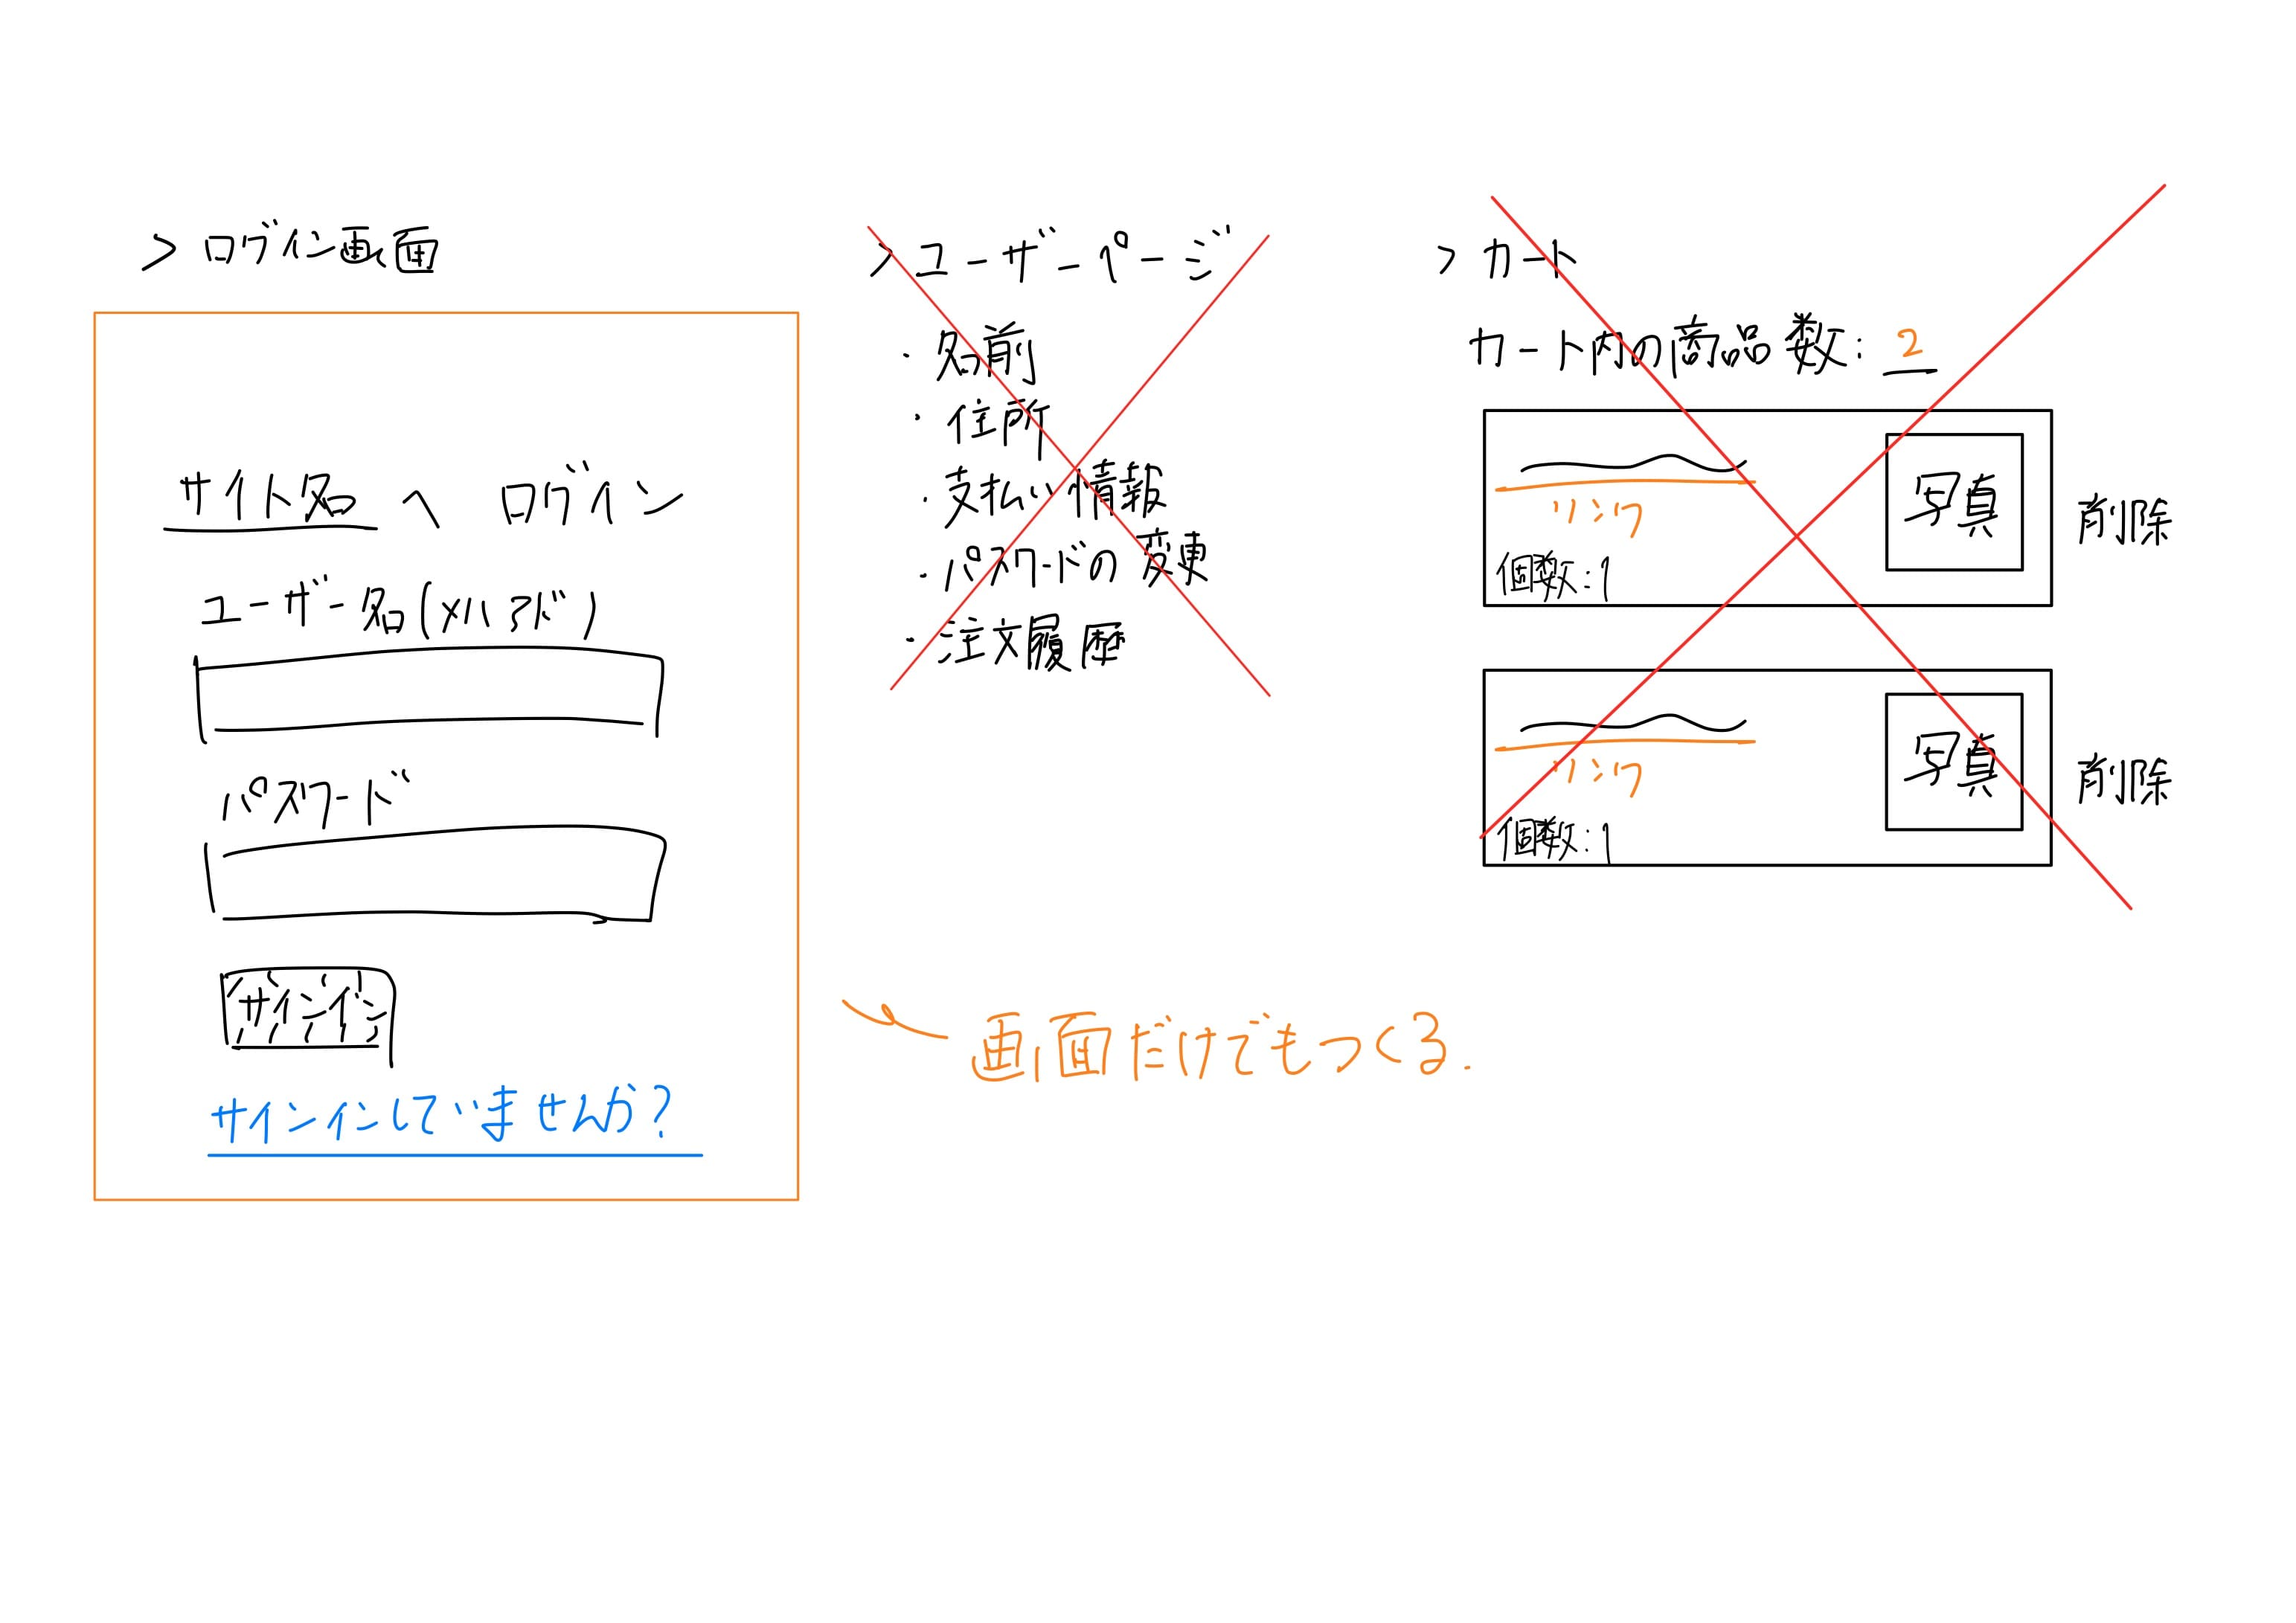 > ログイン画面
サイト名 へ ログイン
ユーザー名(メルアド)
パスワード
サインイン
サインインしていませんか?
> ユーザーページ
・名前
・住所
・支払い情報
・パスワードの変更
・注文履歴
> カート
カート内の商品数: 2
リンク
写真
削除
個数:1
リンク
写真
削除
個数:1
画面だけでもつくる.